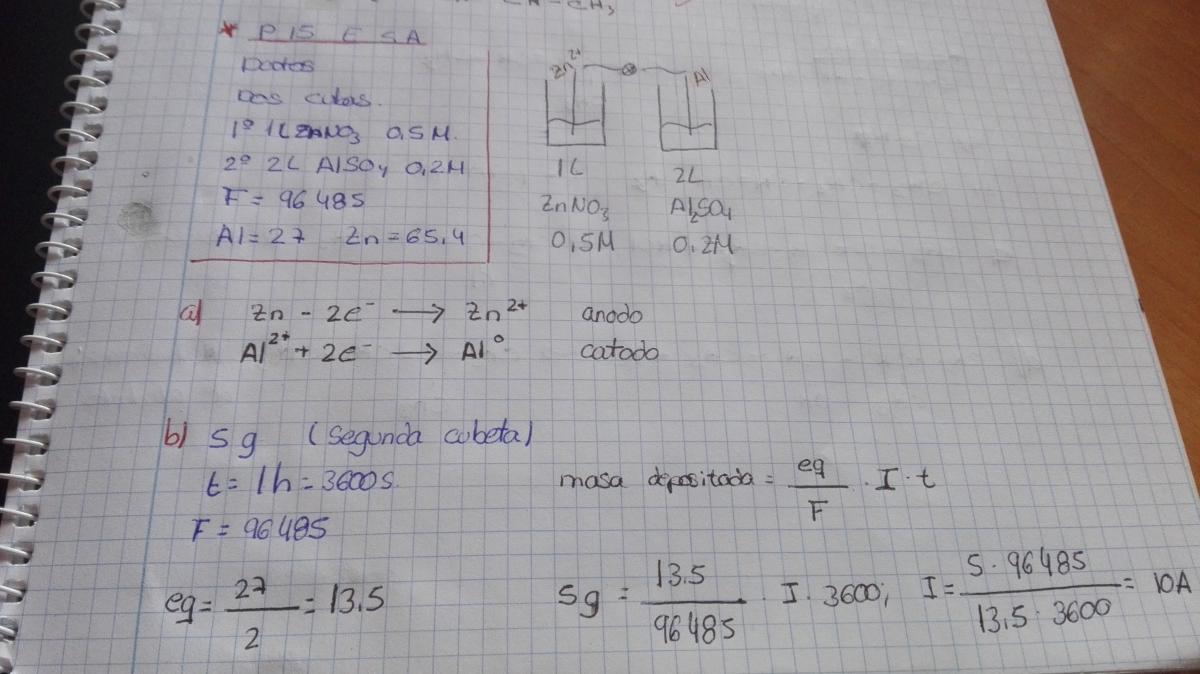 * P15 E SA
Datos
Dos cubas.
1º 1L ZnNO₃ 0,5M.
2º 2L AlSO₄ 0,2M
F = 96485
Al = 27 Zn = 65,4
Zn²⁺ Al
1L 2L
ZnNO₃ Al₂SO₄
0,5M 0,2M
a) Zn - 2e⁻ → Zn²⁺ anodo
Al²⁺ + 2e⁻ → Al⁰ catodo
b) 5g (segunda cubeta)
t = 1h = 3600s.
F = 96485
masa depositada = eq/F · I · t
eq = 27/2 = 13,5
5g = 13.5/96485 · I · 3600; I = 5·96485/13,5·3600 = 10A